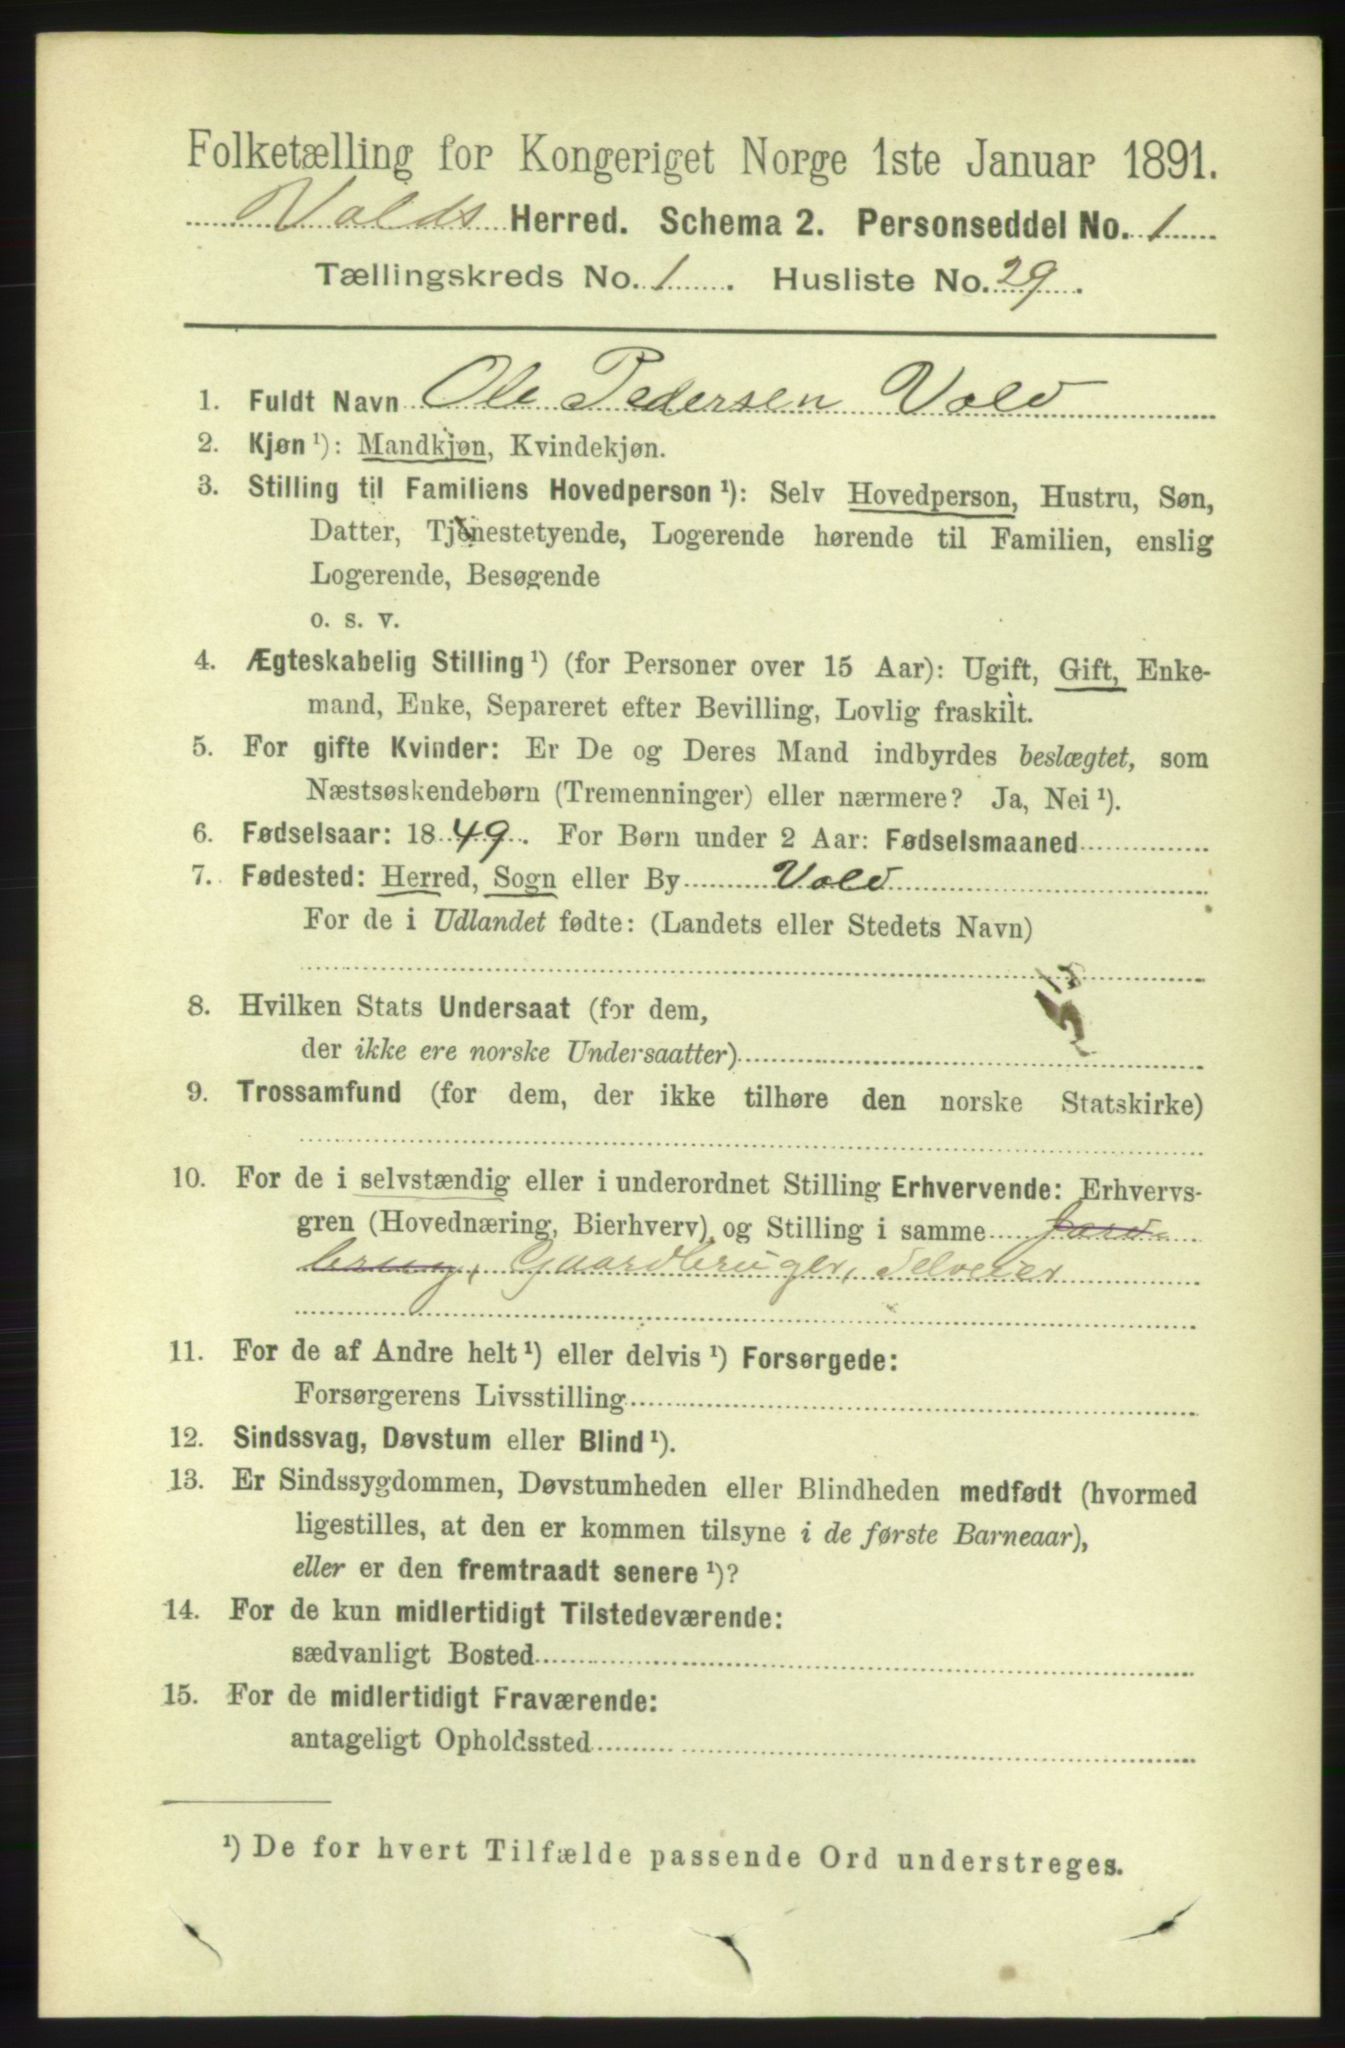 Folketælling for Kongeriget Norge 1ste Januar 1891.
Volds Herred. Schema 2. Personseddel No. 1
Tællingskreds No. 1. Husliste No. 29.
1. Fuldt Navn Ole Pedersen Vold
2. Kjøn ¹): Mandkjøn, Kvindekjøn.
3. Stilling til Familiens Hovedperson ¹): Selv Hovedperson, Hustru, Søn,
Datter, Tjenestetyende, Logerende hørende til Familien, enslig
Logerende, Besøgende
o. s. v.
4. Ægteskabelig Stilling ¹) (for Personer over 15 Aar): Ugift, Gift, Enke-
mand, Enke, Separeret efter Bevilling, Lovlig fraskilt.
5. For gifte Kvinder: Er De og Deres Mand indbyrdes beslægtet, som
Næstsøskendebørn (Tremenninger) eller nærmere? Ja, Nei ¹).
6. Fødselsaar: 1849. For Børn under 2 Aar: Fødselsmaaned
7. Fødested: Herred, Sogn eller By Vold
For de i Udlandet fødte: (Landets eller Stedets Navn)
8. Hvilken Stats Undersaat (for dem,
der ikke ere norske Undersaatter)
9. Trossamfund (for dem, der ikke tilhøre den norske Statskirke)
10. For de i selvstændig eller i underordnet Stilling Erhvervende: Erhvervs-
gren (Hovednæring, Bierhverv) og Stilling i samme Jord-
brug, Gaardbruger, Selveier
11. For de af Andre helt ¹) eller delvis ¹) Forsørgede:
Forsørgerens Livsstilling
12. Sindssvag, Døvstum eller Blind ¹).
13. Er Sindssygdommen, Døvstumheden eller Blindheden medfødt (hvormed
ligestilles, at den er kommen tilsyne i de første Barneaar),
eller er den fremtraadt senere ¹)?
14. For de kun midlertidigt Tilstedeværende:
sædvanligt Bosted
15. For de midlertidigt Fraværende:
antageligt Opholdssted
¹) De for hvert Tilfælde passende Ord understreges.